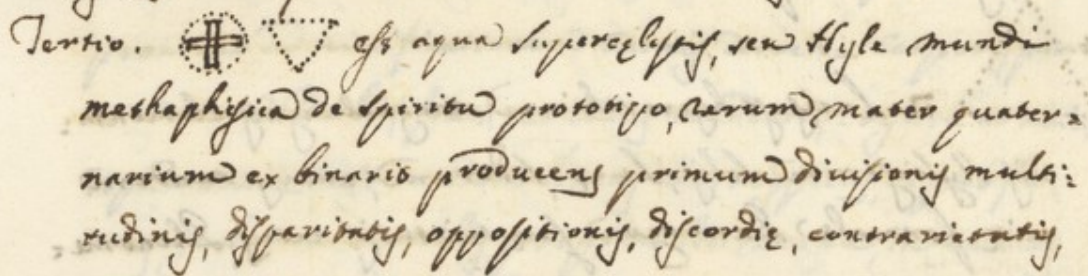 Tertio. est aqua supercęlestis, seu Hyle mundi
methaphisica de spiritu prototipo, rerum mater quater=
narium ex binario producens primum divisionis multi=
tudinis, disparitatis, oppositionis, discordię, contrarietatis,